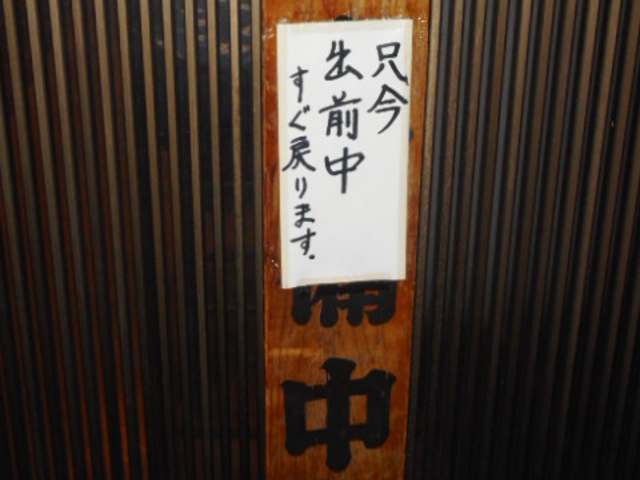 只今
出前中
すぐ戻ります.
備中